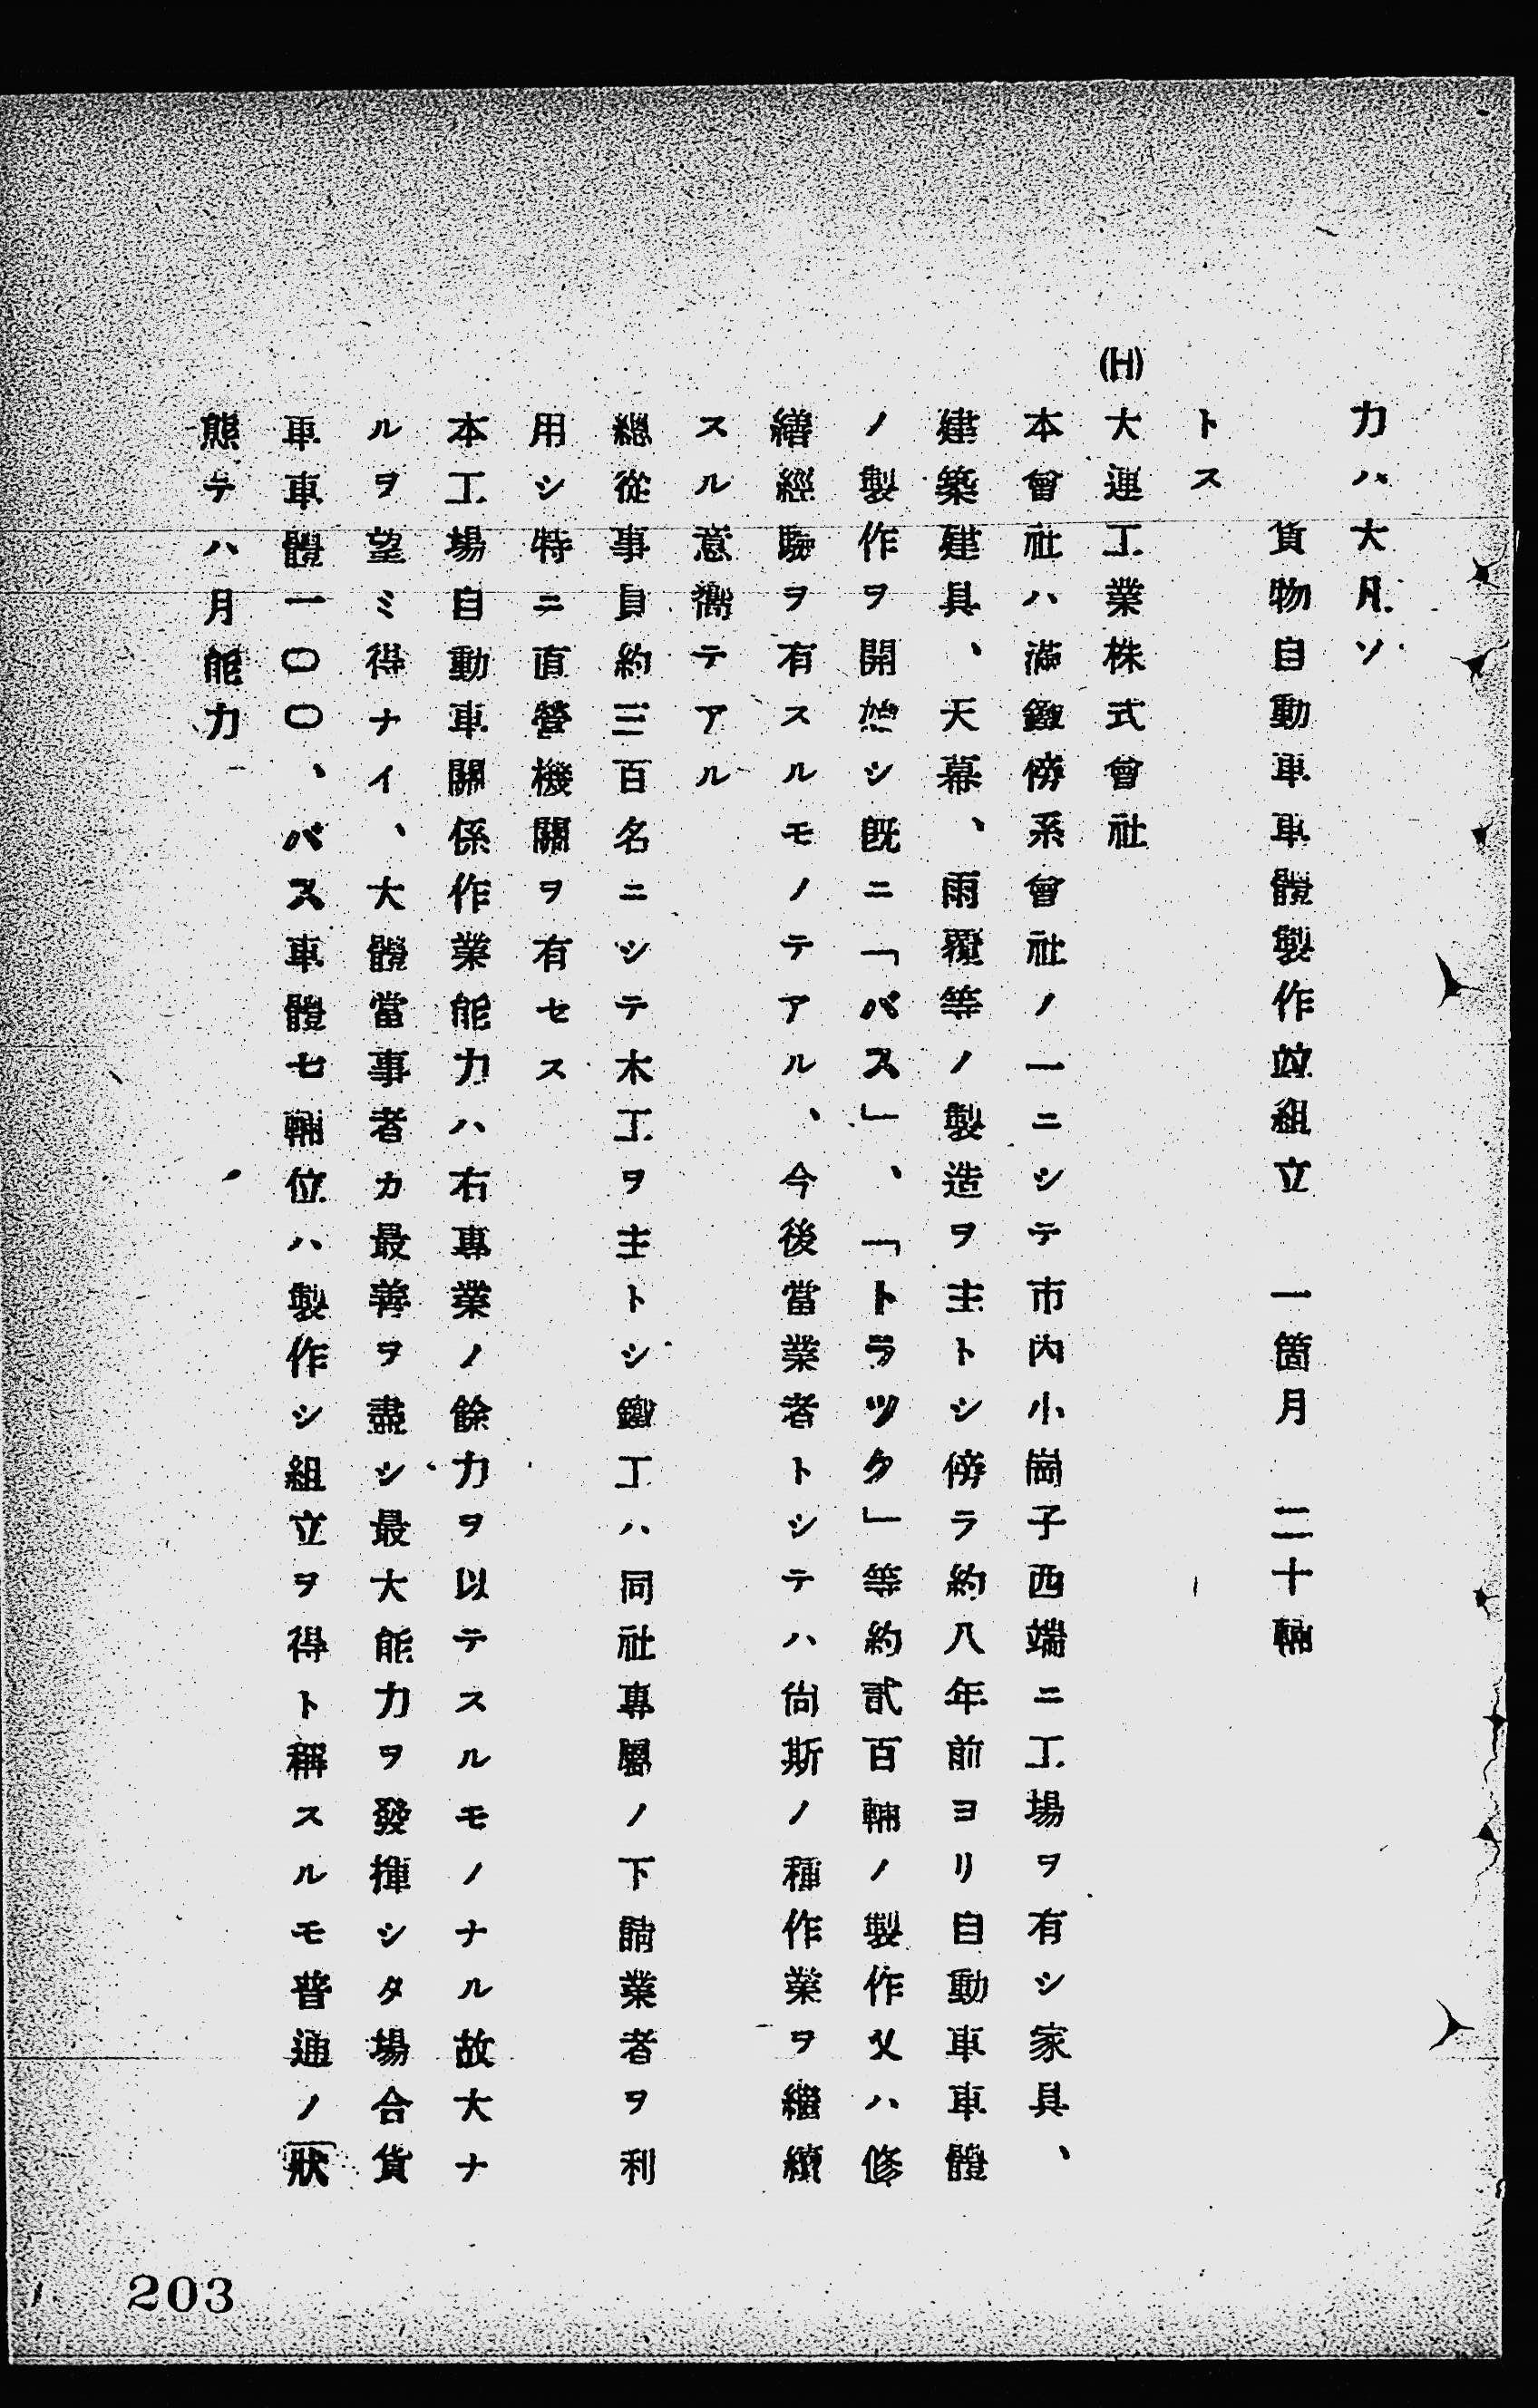 力ハ大凡ソ
貨物自動車車體製作竝組立　一箇月　二十輛
トス
(H)大連工業株式會社
本會社ハ滿鐵傍系會社ノ一ニシテ市內小崗子西端ニ工場ヲ有シ家具、
建築建具、天幕、雨覆等ノ製造ヲ主トシ傍ラ約八年前ヨリ自動車車體
ノ製作ヲ開始シ既ニ「バス」、「トラック」等約貳百輛ノ製作又ハ修
繕經驗ヲ有スルモノテアル、今後當業者トシテハ尙斯ノ種作業ヲ繼續
スル意嚮テアル
總從事員約三百名ニシテ木工ヲ主トシ鐵工ハ同社專屬ノ下請業者ヲ利
用シ特ニ直營機關ヲ有セス
本工場自動車關係作業能力ハ右專業ノ餘力ヲ以テスルモノナル故大ナ
ルヲ望ミ得ナイ、大體當事者カ最善ヲ盡シ最大能力ヲ發揮シタ場合貨
車車體一〇〇、バス車體七輛位ハ製作シ組立ヲ得ト稱スルモ普通ノ狀
態テハ月能力
203